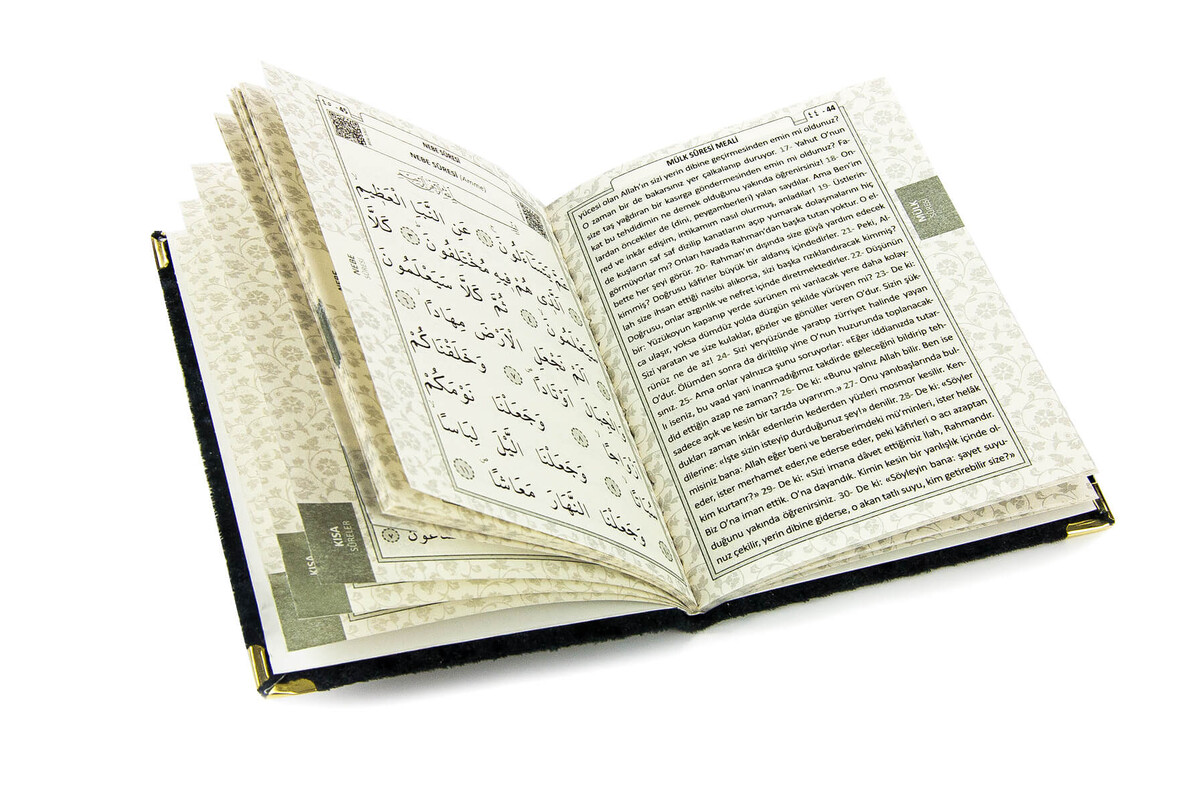 ٤٤ - 44
MÜLK SÛRESİ MEALİ
yücesi olan Allah'ın sizi yerin dibine geçirmesinden emin mi oldunuz?
O zaman bir de bakarsınız yer çalkalanıp duruyor. 17- Yahut O'nun
size taş yağdıran bir kasırga göndermesinden emin mi oldunuz? Fa-
kat bu tehdidimin ne demek olduğunu yakında öğrenirsiniz! 18- On-
lardan öncekiler de (dini, peygamberleri) yalan saydılar. Ama Ben'im
red ve inkâr edişim, intikamım nasıl olurmuş, anladılar! 19- Üstlerin-
de kuşların saf saf dizilip kanatlarını açıp yumarak dolaşmalarını hiç
görmüyorlar mı? Onları havada Rahman'dan başka tutan yoktur. O el-
bette her şeyi görür. 20- Rahman'ın dışında size gûyâ yardım edecek
kimmiş? Doğrusu kâfirler büyük bir aldanış içindedirler. 21- Peki, Al-
lah size ihsan ettiği nasibi alıkorsa, sizi başka rızıklandıracak kimmiş?
Doğrusu, onlar azgınlık ve nefret içinde diretmektedirler. 22- Düşünün
bir: Yüzükoyun kapanıp yerde sürünen mi varılacak yere daha kolay-
ca ulaşır, yoksa dümdüz yolda düzgün şekilde yürüyen mi? 23- De ki:
Sizi yaratan ve size kulaklar, gözler ve gönüller veren O'dur. Sizin şük-
rünüz ne de az! 24- Sizi yeryüzünde yaratıp zürriyet halinde yayan
O'dur. Ölümden sonra da diriltilip yine O'nun huzurunda toplanacak-
sınız. 25- Ama onlar yalnızca şunu soruyorlar: «Eğer iddianızda tutar-
lı iseniz, bu vaad yani inanmadığımız takdirde geleceğini bildirip teh-
did ettiğin azap ne zaman? 26- De ki: «Bunu yalnız Allah bilir. Ben ise
sadece açık ve kesin bir tarzda uyarırım.» 27- Onu yanıbaşlarında bul-
dukları zaman inkâr edenlerin kederden yüzleri mosmor kesilir. Ken-
dilerine: «İşte sizin isteyip durduğunuz şey!» denilir. 28- De ki: «Söyler
misiniz bana: Allah eğer beni ve beraberimdeki mü'minleri, ister helâk
eder, ister merhamet eder,ne ederse eder, peki kâfirleri o acı azaptan
kim kurtarır?» 29- De ki: «Sizi imana dâvet ettiğimiz ilah, Rahmandır.
Biz O'na iman ettik. O'na dayandık. Kimin kesin bir yanlışlık içinde ol-
duğunu yakında öğrenirsiniz. 30- De ki: «Söyleyin bana: şayet suyu-
nuz çekilir, yerin dibine giderse, o akan tatlı suyu, kim getirebilir size?»
MÜLK
SÛRESİ
٤٥ - 45
NEBE SÛRESİ
NEBE SÛRESİ (Amme)
عَمَّ يَتَسَٓاءَلُونَ ١ عَنِ النَّبَأِ الْعَظِيمِ
اَلَّذِي هُمْ فِيهِ مُخْتَلِفُونَ كَلَّا
سَيَعْلَمُونَ ثُمَّ كَلَّا سَيَعْلَمُونَ
اَلَمْ نَجْعَلِ الْاَرْضَ مِهَادًا
وَالْجِبَالَ اَوْتَادًا ٧ وَخَلَقْنَاكُمْ
اَزْوَاجًا وَجَعَلْنَا نَوْمَكُمْ
سُبَاتًا وَجَعَلْنَا الَّيْلَ لِبَاسًا
وَجَعَلْنَا النَّهَارَ مَعَاشًا
NEBE
KISA
SÛRELER
KISA